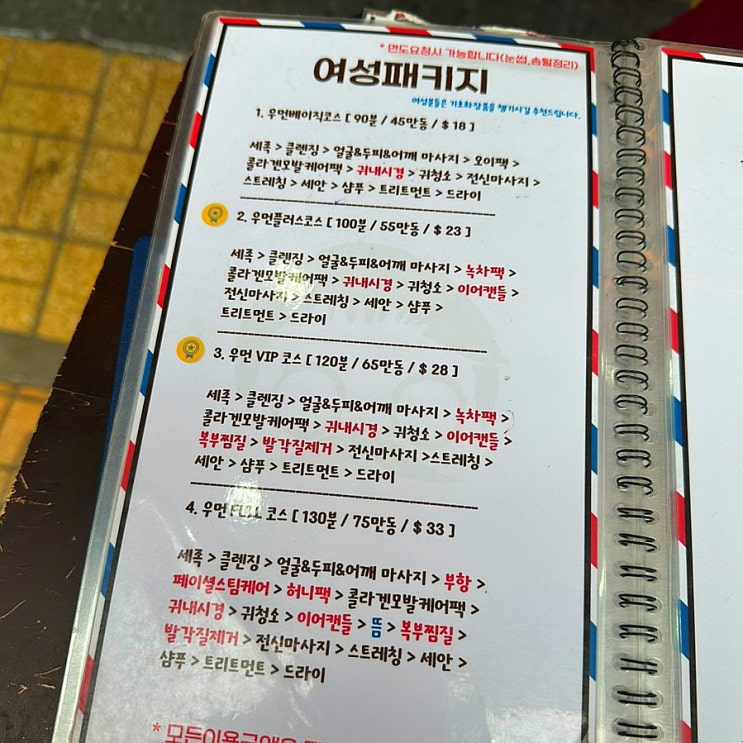 * 면도요청시 가능합니다(눈썹,솜털정리)
여성패키지
여성분들은 기초화장품을 챙기시길 추천드립니다.
1. 우먼베이직코스 [ 90분 / 45만동 / $ 18 ]
세족 > 클렌징 > 얼굴&두피&어깨 마사지 > 오이팩 >
콜라겐모발케어팩 > 귀내시경 > 귀청소 > 전신마사지 >
스트레칭 > 세안 > 샴푸 > 트리트먼트 > 드라이
2. 우먼플러스코스 [ 100분 / 55만동 / $ 23 ]
세족 > 클렌징 > 얼굴&두피&어깨 마사지 > 녹차팩 >
콜라겐모발케어팩 > 귀내시경 > 귀청소 > 이어캔들 >
전신마사지 > 스트레칭 > 세안 > 샴푸 >
트리트먼트 > 드라이
3. 우먼 VIP 코스 [ 120분 / 65만동 / $ 28 ]
세족 > 클렌징 > 얼굴&두피&어깨 마사지 > 녹차팩 >
콜라겐모발케어팩 > 귀내시경 > 귀청소 > 이어캔들 >
복부찜질 > 발각질제거 > 전신마사지 >스트레칭 >
세안 > 샴푸 > 트리트먼트 > 드라이
4. 우먼 FULL 코스 [ 130분 / 75만동 / $ 33 ]
세족 > 클렌징 > 얼굴&두피&어깨 마사지 > 부항 >
페이셜스팀케어 > 허니팩 > 콜라겐모발케어팩 >
귀내시경 > 귀청소 > 이어캔들 > 뜸 > 복부찜질 >
발각질제거 > 전신마사지 > 스트레칭 > 세안 >
샴푸 > 트리트먼트 > 드라이
* 모든이용금액은